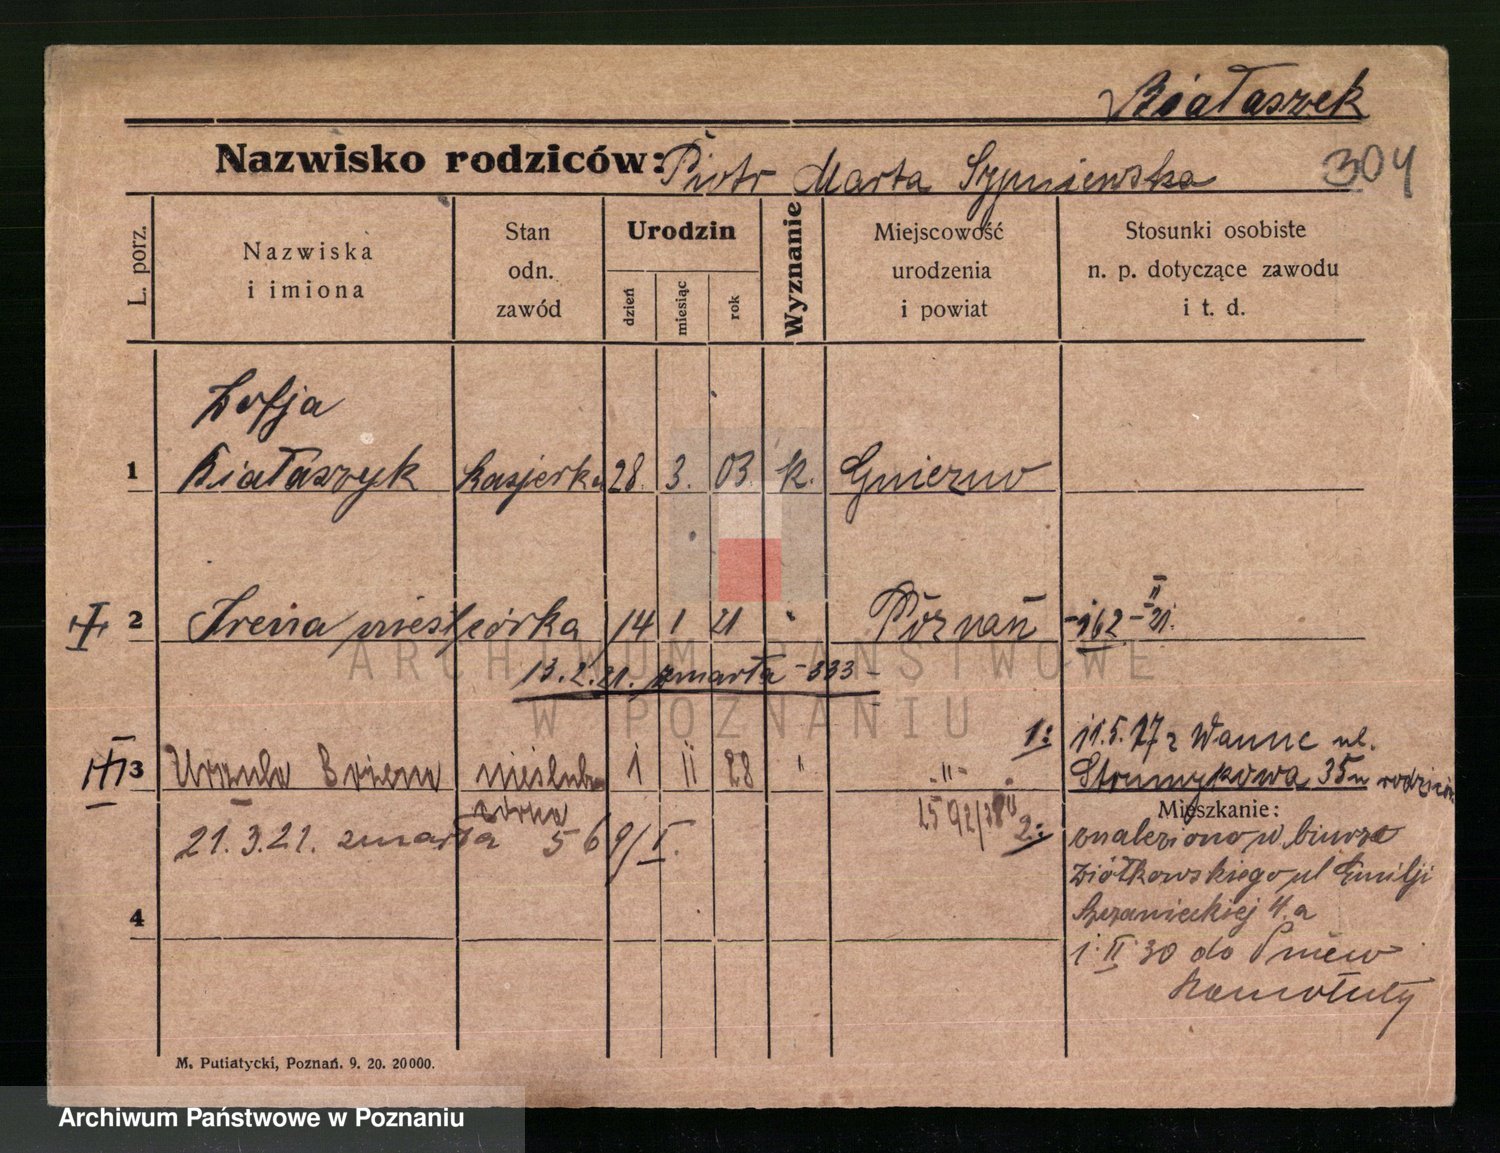 Białaszek
Nazwisko rodziców: Piotr Marta Szpniewska
304
L. porz.
Nazwiska
i imiona
Stan
odn.
zawód
Urodzin
dzień
miesiąc
rok
Wyznanie
Miejscowość
urodzenia
i powiat
Stosunki osobiste
n. p. dotyczące zawodu
i t. d.
Zofja
1 Białaszyk kasjerka 28. 3. 03. k. Gniezno
II
2 Irena nieśl córka 14 1 21 " Poznań -162- 21.
13.2.21. zmarła -333-
ARCHIWUM PAŃSTWOWE
W POZNANIU
1: 11.5.27 z Wanne ul.
3 Urszula nieślub 1 II 28 " -"- Strumykowa 35 u rodziców
córka
Mieszkanie:
21.3.21. zmarła 569/I.
2592/28
2: znaleziono w biurze
Ziółkowskiego ul Emilji
Szczanieckiej 4.a
4
1. II 30 do Pniew
Szamotuły
M. Putiatycki, Poznań. 9. 20. 20000.
Archiwum Państwowe w Poznaniu